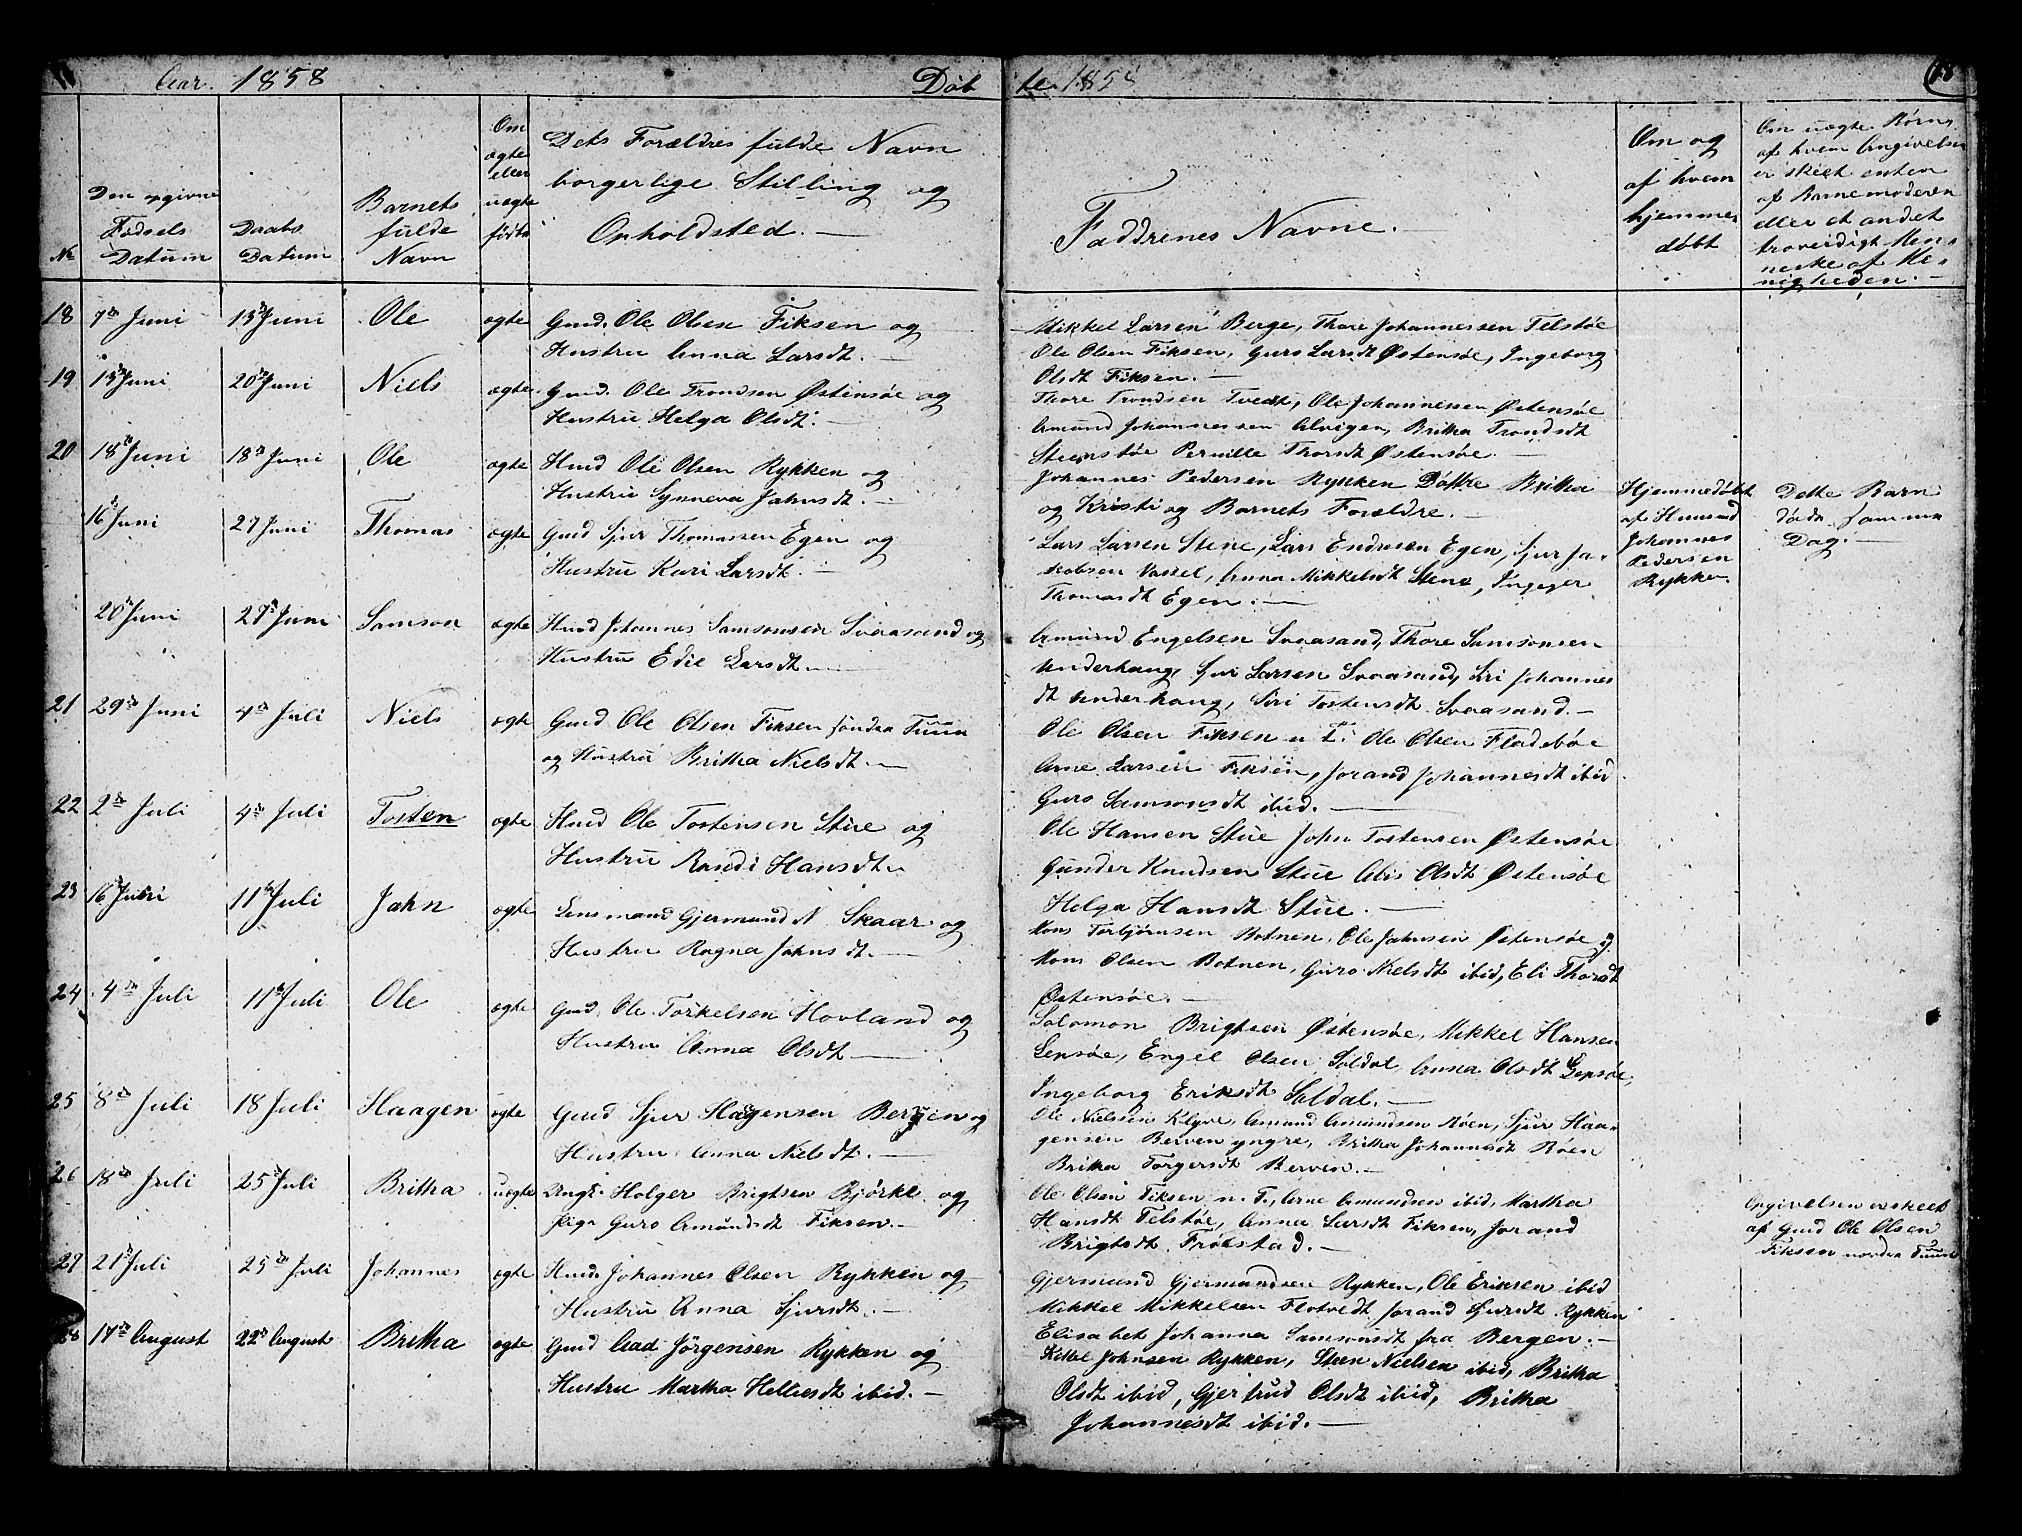 Aar. 1858
Døb
te 1858
18
No
Den opgivne
Fødsels
Datum
Daabs
Datum
Barnets
fulde
Navn
Om
ægte
eller
uægte
födte
Dets Forældres fulde Navn
borgerlige Stilling og
Opholdsted. —
Faddrenes Navne. —
Om og
af hvem
hjemme
døbt
Om uægte Børns
af hvem Angivelsen
er skeet enten
af Barnemoderen
eller et andet
troverdigt Men-
neske af Me-
nigheden. —
18 7de Juni 13de Juni Ole ægte Gmd. Ole Olsen Fiksen og
Hustru Anna Larsdt. —
Mikkel Larsen Berge, Thore Johannessen Telstøe
Ole Olsen Fiksen, Guro Larsdt Østensøe, Ingeborg
Olsdt Fiksen. —
19 13de Juni 20de Juni Niels ægte Gmd. Ole Trondsen Østensøe og
Hustru Helga Olsdt. —
Thore Trondsen Tvedt, Ole Johannessen Østensøe
Amund Johannessen Alvigen, Britha Trondsdt
Steenstøe Pernille Thorsdt Østensøe. —
20 18de Juni 18de Juni Ole ægte Hmd Ole Olsen Rykken og
Hustru Synneva Jahnsdt. —
Johannes Pedersen Rykken Døttre Britha
og Kristi og Barnets Forældre. —
Hjemmedøbt
af Huusmd
Johannes
Pedersen
Rykken.
Dette Barn
døde samme
Dag. —
16de Juni 27 Juni Thomas ægte Gmd Sjur Thomassen Egen og
Hustru Kari Larsdt. —
Lars Larsen Stene, Lars Endresen Egen, Sjur Ja-
kobsen Vassel, Anna Mikkelsdt Stene, Ingeger
Thomasdt Egen. —
20de Juni 27de Juni Samson ægte Hmd Johannes Samsonsen Svaasand og
Hustru Edil Larsdt. —
Amund Engelsen Svaasand, Thore Samsonsen
Underhaug, Sjur Larsen Svaasand, Siri Johannes
dt Underhaug, Siri Tostensdt Svaasand. —
21 29de Juni 4de Juli Niels ægte Gmd Ole Olsen Fiksen søndra Tuun
og Hustru Britha Nielsdt. —
Ole Olsen Fiksen n T. Ole Olsen Fladebøe
Arne Larsen Fiksen, Jorand Johannesdt ibid
Guro Samsonsdt ibid. —
22 2de Juli 4de Juli Tosten ægte Hmd Ole Tostensen Stue og
Hustru Randi Hansdt.
Ole Hansen Stue John Tostensen Østensøe
Gunder Knudsen Stue Alis Olsdt Østensøe
Helga Hansdt Stue. —
23 16de Juni 11te Juli Jahn ægte Lensmand Gjermund N Skaar og
Hustru Ragna Jahnsdt. —
Mons Torbjørnsen Botnen, Ole Jahnsen Østensøe
Mons Olsen Botnen, Guro Nielsdt ibid, Eli Thorsdt
Østensøe. —
24 4de Juli 11te Juli Ole ægte Gmd. Ole Torkelsen Hovland og
Hustru Anna Olsdt —
Solomon Brigtsen Østensøe, Mikkel Hansen
Lepsøe, Engel Olsen Soldal Anna Olsdt Lepsøe,
Ingeborg Eriksdt Soldal. —
25 8de Juli 18 Juli Haagen ægte Gmd Sjur Haagensen Berven og
Hustru Anna Nielsdt. —
Ole Nielsen Klyve, Amund Amundsen Røen, Sjur Haa-
gensen Berven yngre, Britha Johannesdt Røen
Britha Torgersdt Berven. —
26 18de Juli 25de Juli Britha uægte Ungk. Holger Brigtsen Bjørke og
Pige Guro Amundsdt Fiksen. —
Ole Olsen Fiksen n. T., Arne Amundsen ibid, Martha
Hansdt Telstøe, Anna Larsdt Fiksen, Jorand
Brigtsdt Frølstad. —
Angivelsen er skeet
af Gmd Ole Olsen
Fiksen nordra Tuun
27 21de Juli 25de Juli Johannes ægte Hmd. Johannes Olsen Rykken og
Hustru Anna Sjursdt. —
Gjermund Gjermundsen Rykken, Ole Eriksen ibid
Mikkel Mikkelsen Flotvedt Jorand Sjursdt Rykken
Elisabet Johanna Samsonsdt fra Bergen. —
28 17de August 22de August Britha ægte Gmd Aad Jörgensen Rykken og
Hustru Martha Hellesdt ibid. —
Kittel Johnsen Rykken, Steen Nielsen ibid, Britha
Olsdt ibid, Gjertrud Olsdt ibid, Britha
Johannesdt ibid. —